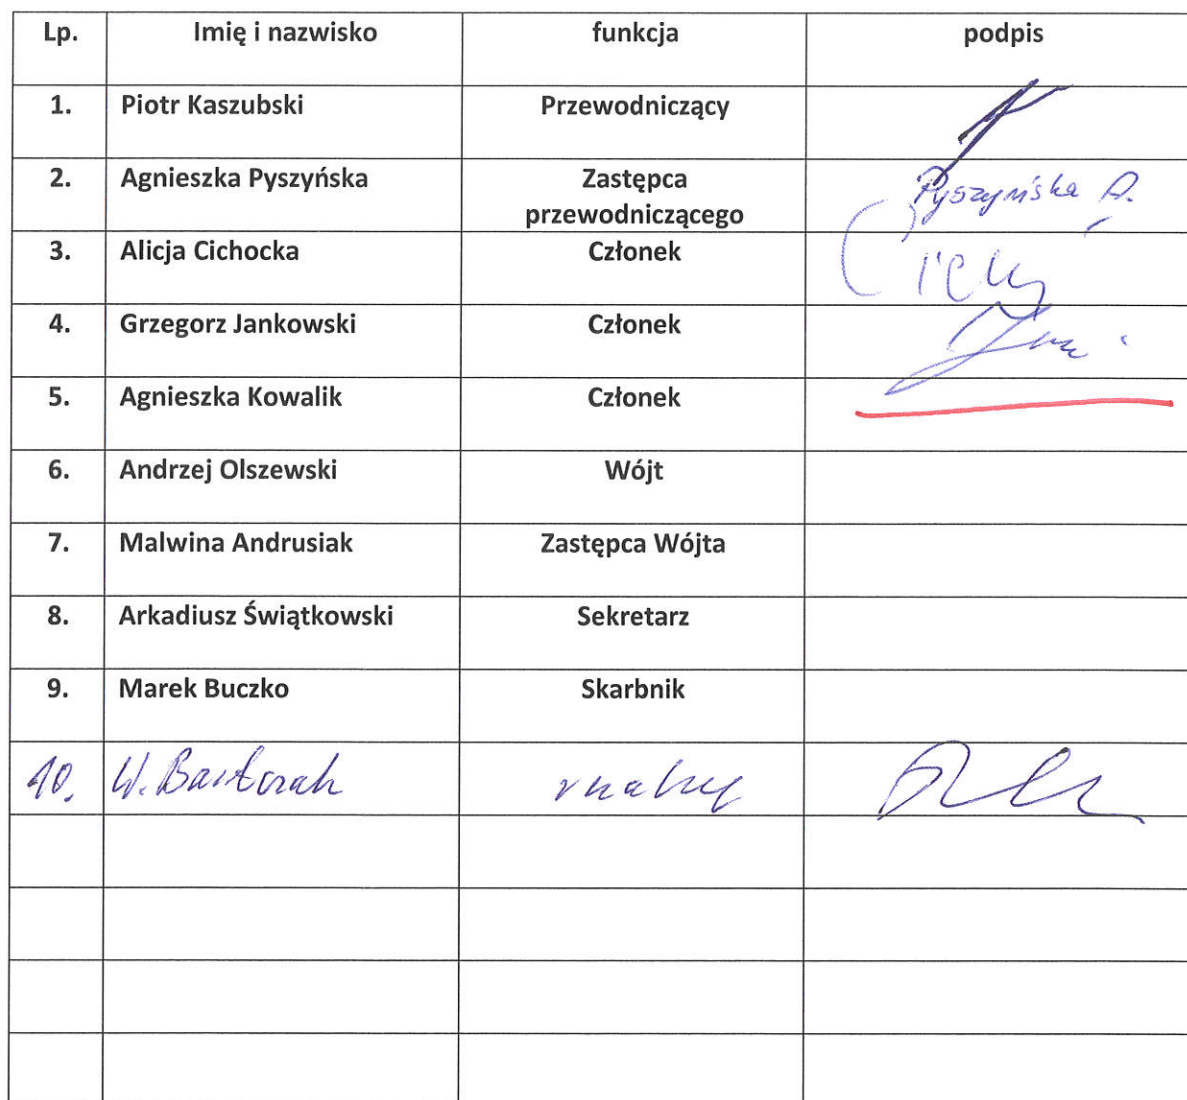 Lp. Imię i nazwisko funkcja podpis
1. Piotr Kaszubski Przewodniczący
2. Agnieszka Pyszyńska Zastępca przewodniczącego Pyszyńska A.
3. Alicja Cichocka Członek
4. Grzegorz Jankowski Członek
5. Agnieszka Kowalik Członek
6. Andrzej Olszewski Wójt
7. Malwina Andrusiak Zastępca Wójta
8. Arkadiusz Świątkowski Sekretarz
9. Marek Buczko Skarbnik
10. W. Bartczak radny